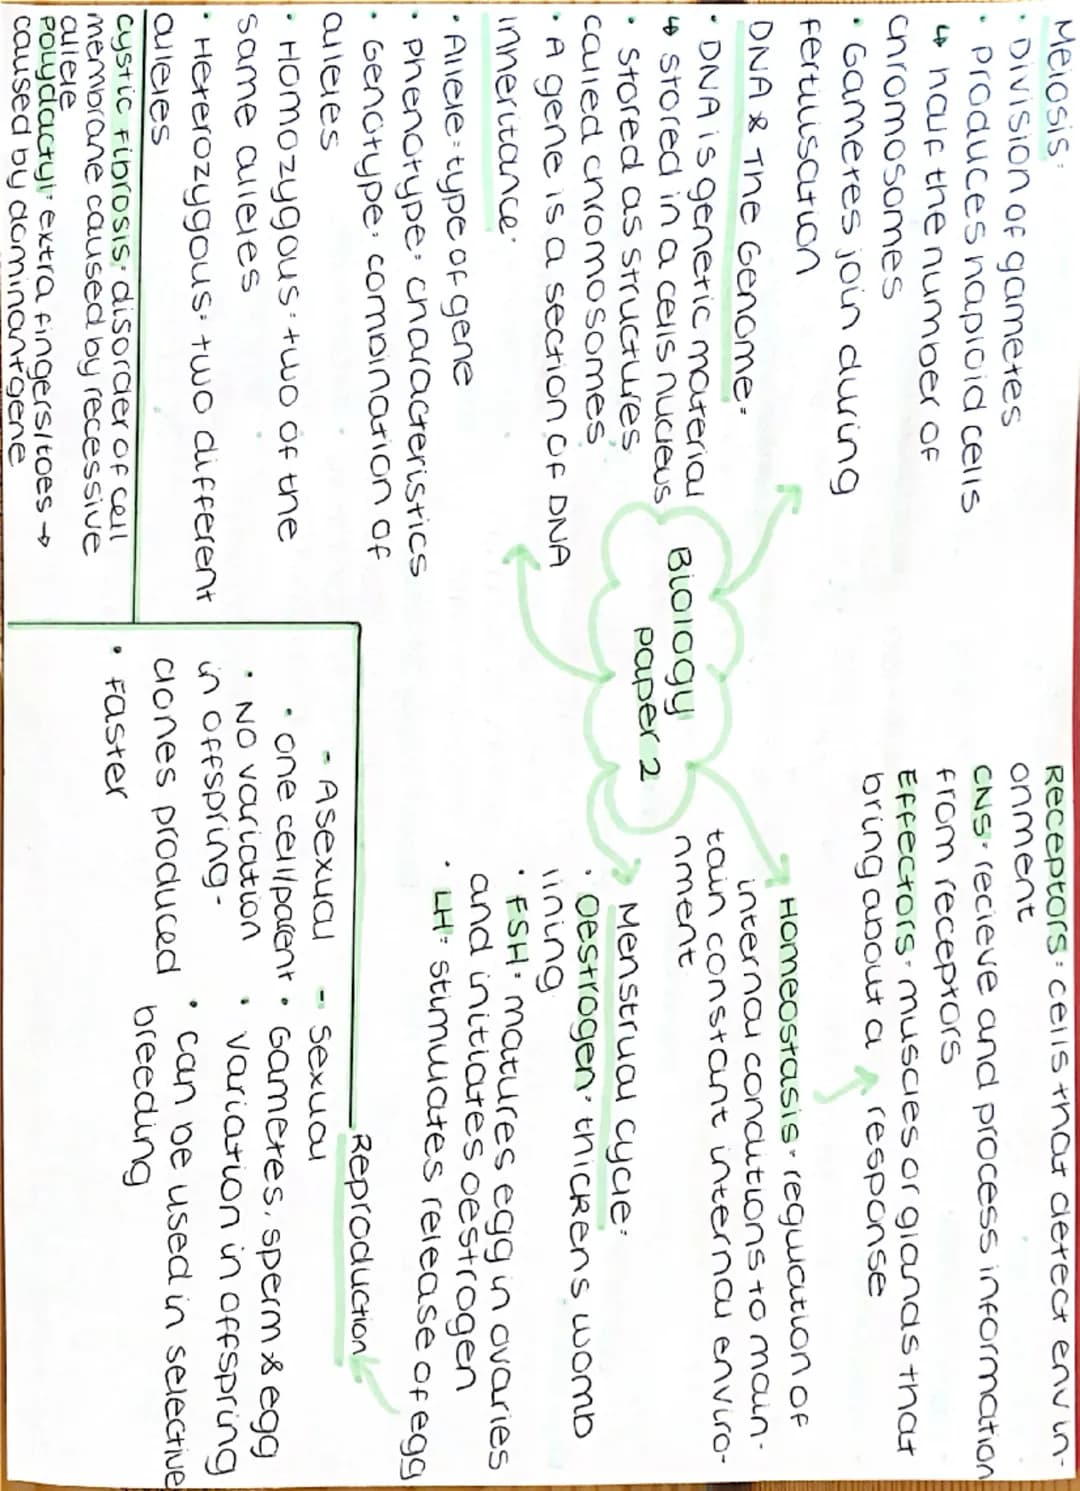 Meiosis:
• Division of gametes
• Produces haploid cells
↳ half the number of
chromosomes
• Gametes join during
fertilisation
DNA & The Genome:
• DNA is genetic material
↳ stored in a cells nucleus
• stored as structures
called chromosomes
• A gene is a section of DNA
inheritance:
• Allele = type of gene
• Phenotype: characteristics
• Genotype: combination of
alleles
• Homozygous = two of the
same alleles
• Heterozygous = two different
alleles
cystic fibrosis: disorder of cell
membrane caused by recessive
allele
polydactyl: extra fingers/toes →
caused by dominant gene
Biology
paper 2
Receptors: cells that detect envin-
onment
CNS: recieve and process information
from receptors
Effectors: muscles or glands that
bring about a response
Homeostasis: regulation of
internal conditions to main-
tain constant internal enviro-
nment
Menstrual cycle:
• Oestrogen: thickens womb
lining
• FSH: matures egg in ovaries
and initiates oestrogen
• LH: stimulates release of egg
Reproduction
- Asexual
• one cell/parent
• No variation
in offspring.
clones produced
• Faster
- Sexual
• Gametes, sperm & egg
• Variation in offspring
• can be used in selective
breeding